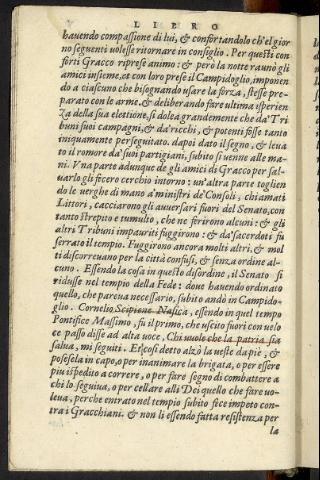 LIBRO
havendo compassione di lui, & confortandolo ch'el gior
no seguente volesse ritornare in consiglio. Per questi con
forti Gracco riprese animo: & però la notte raunò gli
amici insieme, et con loro prese il Campidoglio, imponen
do a ciascuno che bisognando usare la forza, stesse pre-
parato con le arme. & deliberando fare ultima esperien
za della sua elettione, si dolea grandemente che da' Tri
buni suoi compagni, & da' ricchi, & potenti fosse tanto
iniquamente perseguitato. dapoi dato il segno, & leva
to il romore da' suoi partigiani, subito si venne alle ma-
ni. Vna parte adunque de gli amici di Gracco per sal-
uarlo gli fecero cerchio intorno: un'altra parte toglien
do le uerghe di mano a' ministri de' Consoli, chiamati
Littori, cacciarono gli auuersari fuori del Senato, con
tanto strepito e tumulto, che ne ferirono alcuni: & gli
altri Tribuni impauriti fuggirono: & da' sacerdoti fu
serrato il tempio. Fuggirono ancora molti altri, & mol
ti discorreuano per la città confusi, & senza ordine al-
cuno. Essendo la cosa in questo disordine, il Senato si
ridusse nel tempio della Fede: doue hauendo ordinato
quello, che pareua necessario, subito andò in Campido-
glio. Cornelio Scipione Nasica, essendo in quel tempo
Pontifice Massimo, fu il primo, che uscito fuori con uelo
ce passo disse ad alta uoce, Chi vuole che la patria sia
salua, mi seguiti. Et così detto alzò la ueste da piè, &
posesela in capo, o per inanimare la brigata, o per essere
piu ispedito a correre, o per fare segno di combattere a
chi lo seguiua, o per cellare alli Dei quello che fare uo-
leua, perche entrato nel tempio subito fece impeto con-
tra i Gracchiani. & non li essendo fatta resistenza per
la